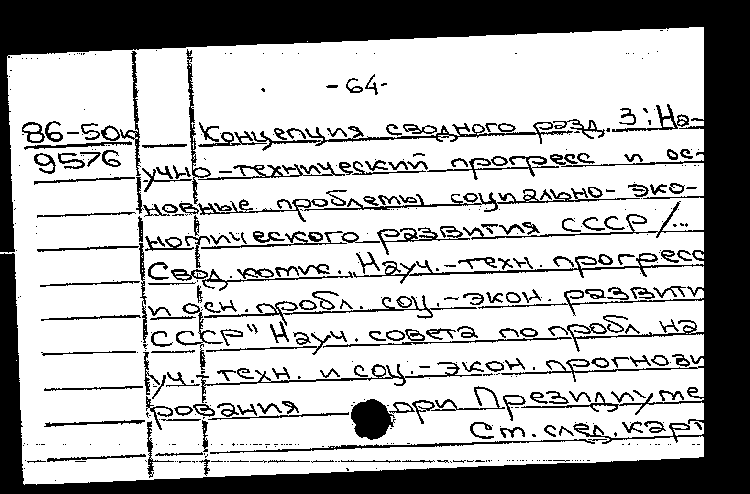 -64-
86-50к Концепция сводного разд. 3: На-
9576 учно-технический прогресс и ос-
новные проблемы социально-эко-
номического развития СССР /...
Свод. комис. „Науч.-техн. прогресс
и осн. пробл. соц.-экон. развити
СССР" Науч. совета по пробл. на
уч.-техн. и соц.-экон. прогнози
рования при Президиуме
См. след. карт